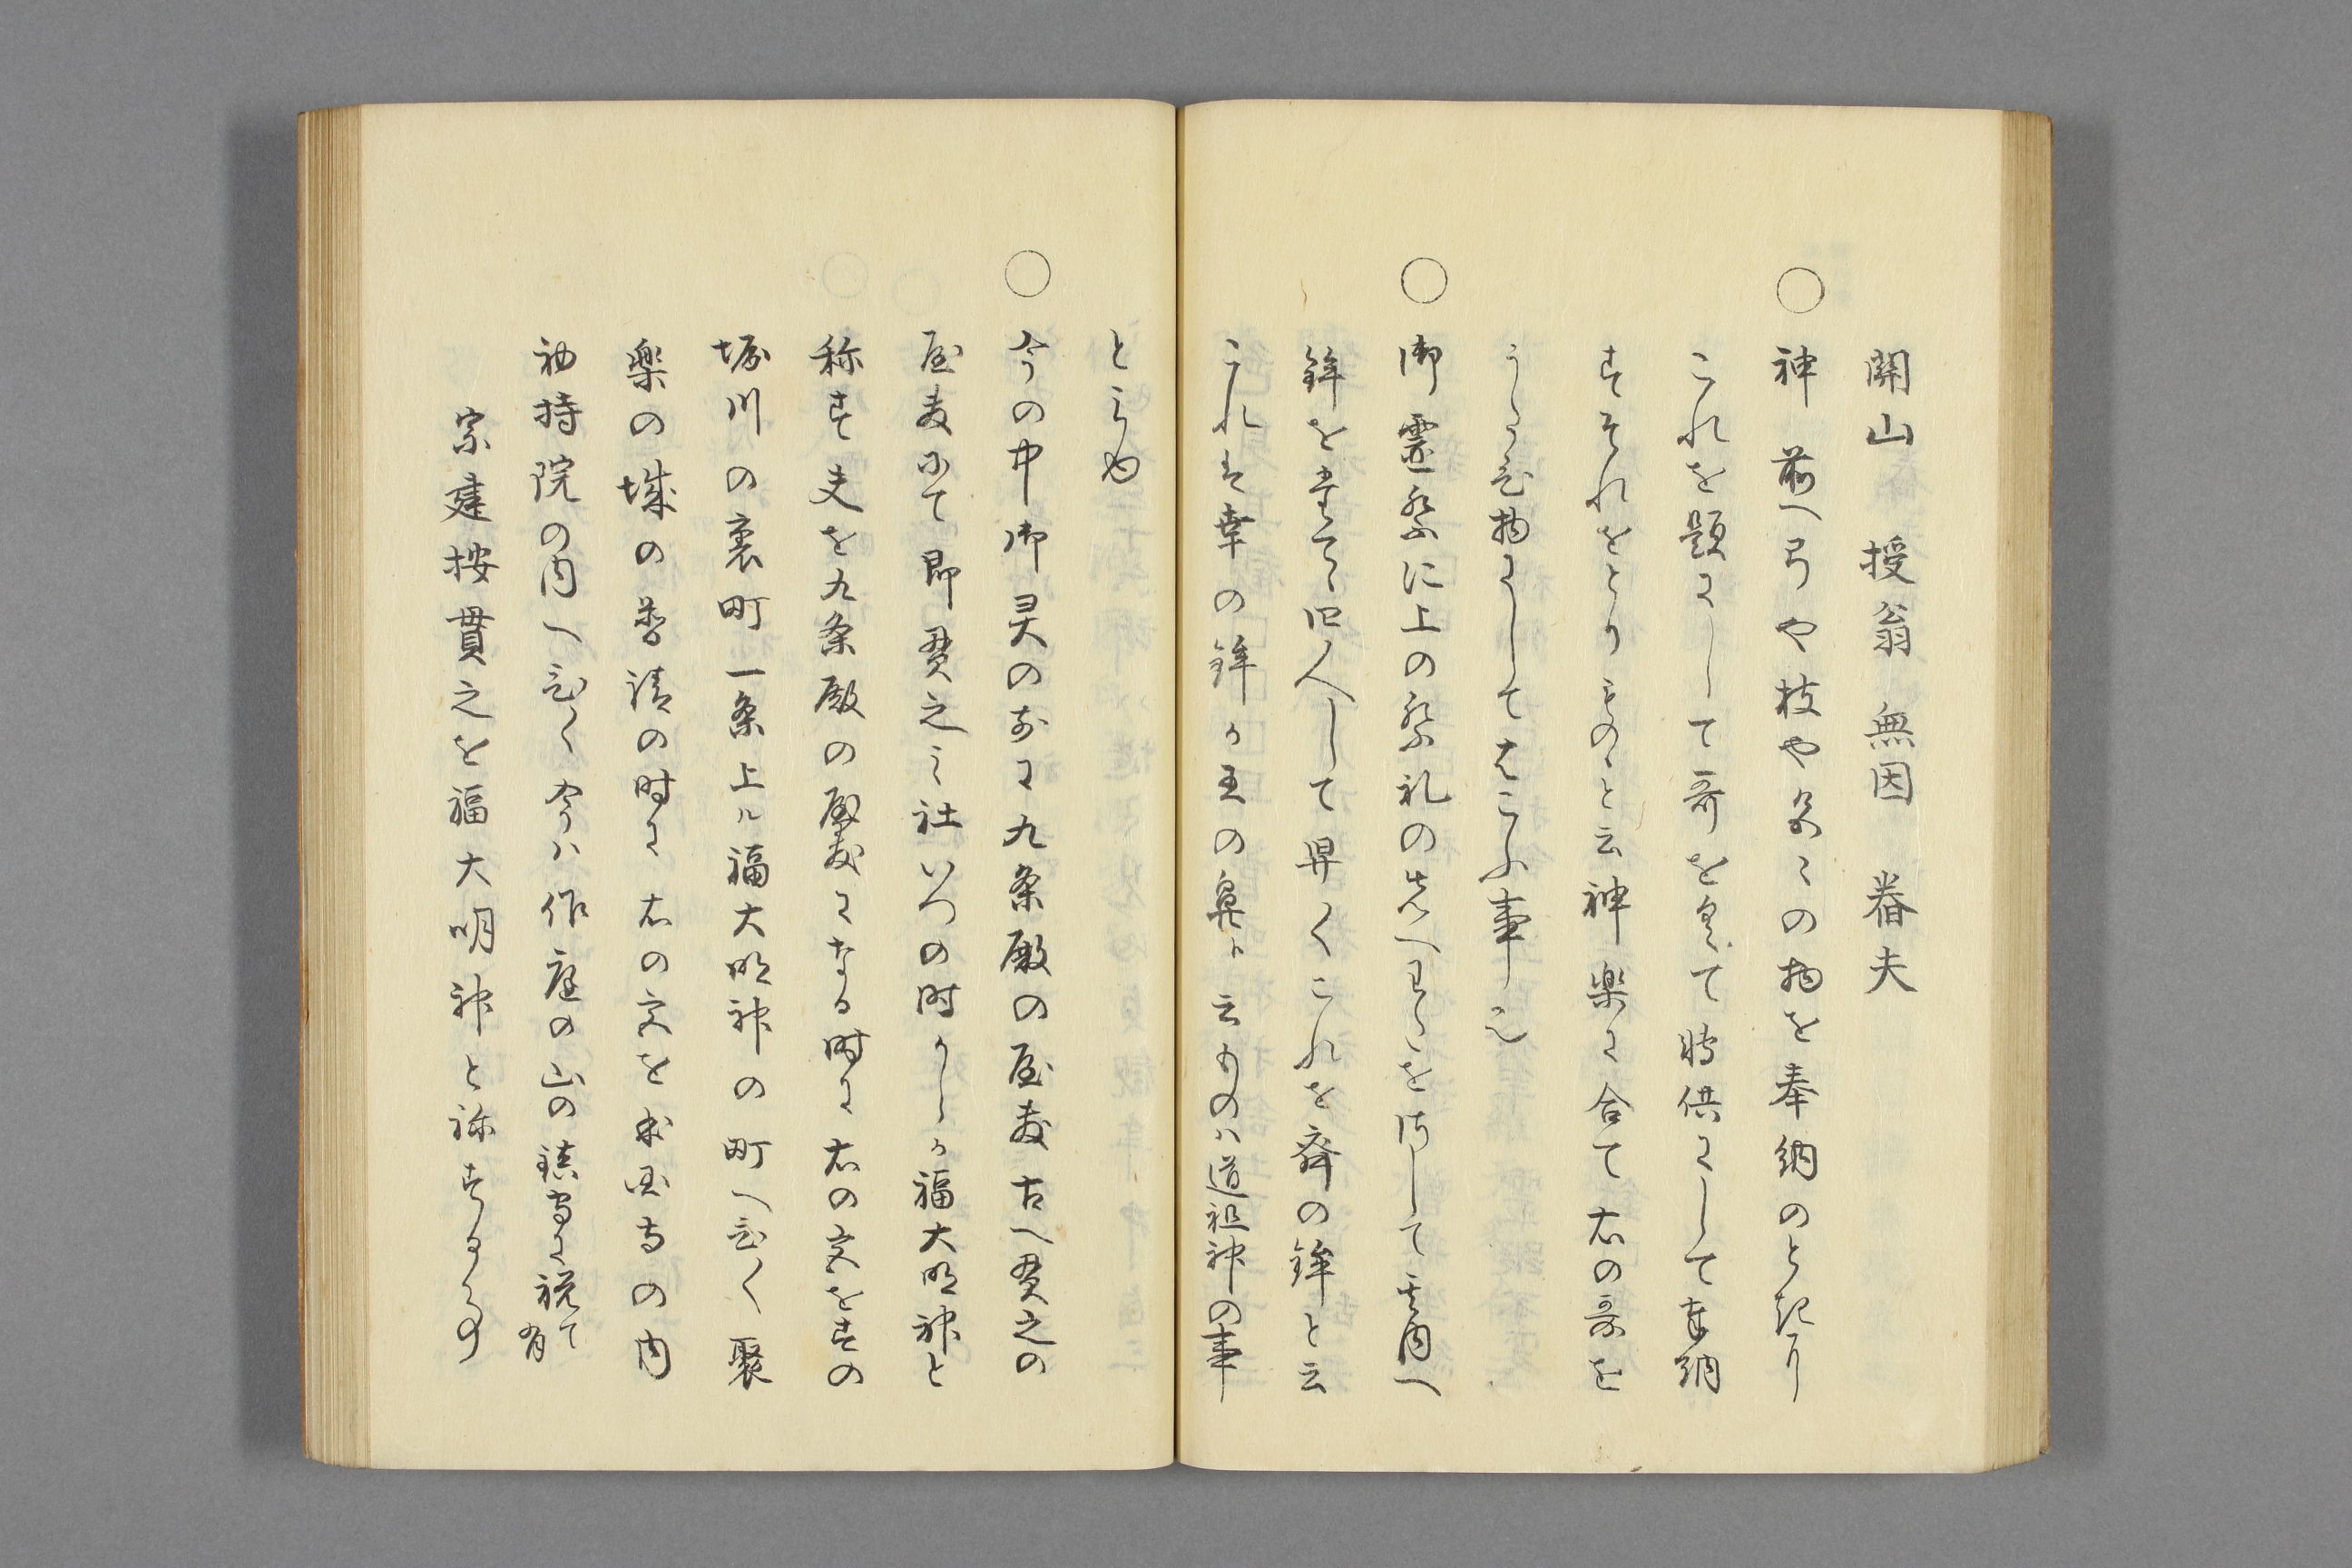 開山　授翁　無因　舂夫
○神前へ弓や枝や色〻の物を奉納のとき
これを題にして哥をよみて時供にして奉納
すそれをとりものと云神楽に合て右の哥を
うたひ物にしてはこふ事也
○御霊祭に上の祭礼の先へをして内へ
鉾をたてゝ四人して舁くこれを斎の鉾と云
これは幸の鉾か王の鼻か云ものハ道祖神の事
とそ也
○今の中御灵の前に九条殿の屋敷古へ貫之の
屋敷にて即貫之之社いつの時よりか福大明神と
称す夫を九条殿の屋敷になる時に右の宮をすの
堀川の裏町一条上ル福大明神の町へひく聚
楽の城の普請の时に右の宮を相国寺の内
初持院の内へひく今ハ作庭の山の鎮守に祝て有
宗建按貫之を福大明神と称する事